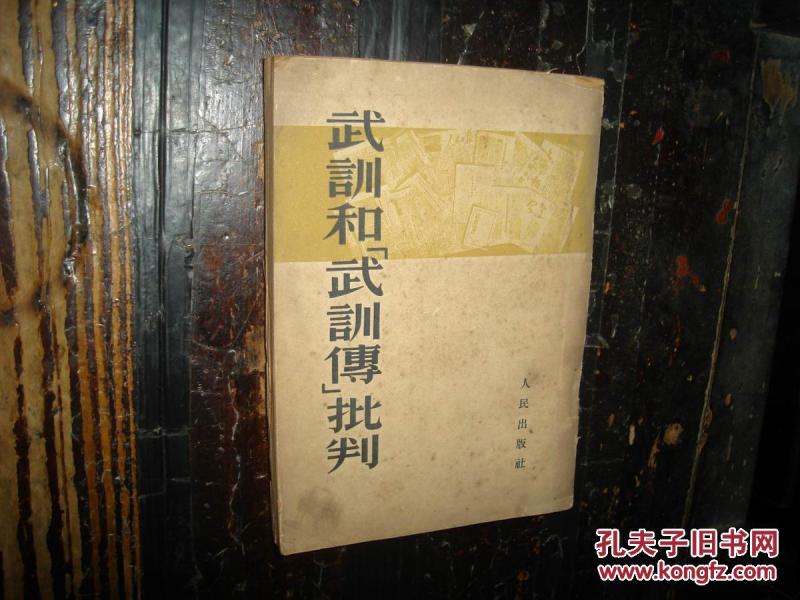 武訓和「武訓傳」批判
人民出版社
孔夫子旧书网
www.kongfz.com